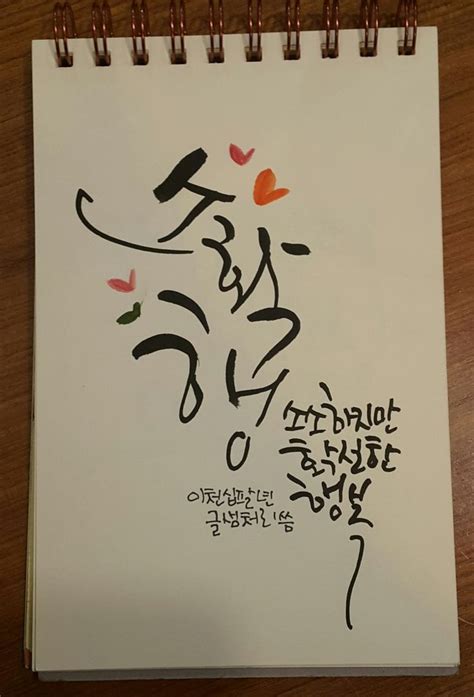 소확행
소소하지만
확실한
행복
이천십팔년
글샘처리씀